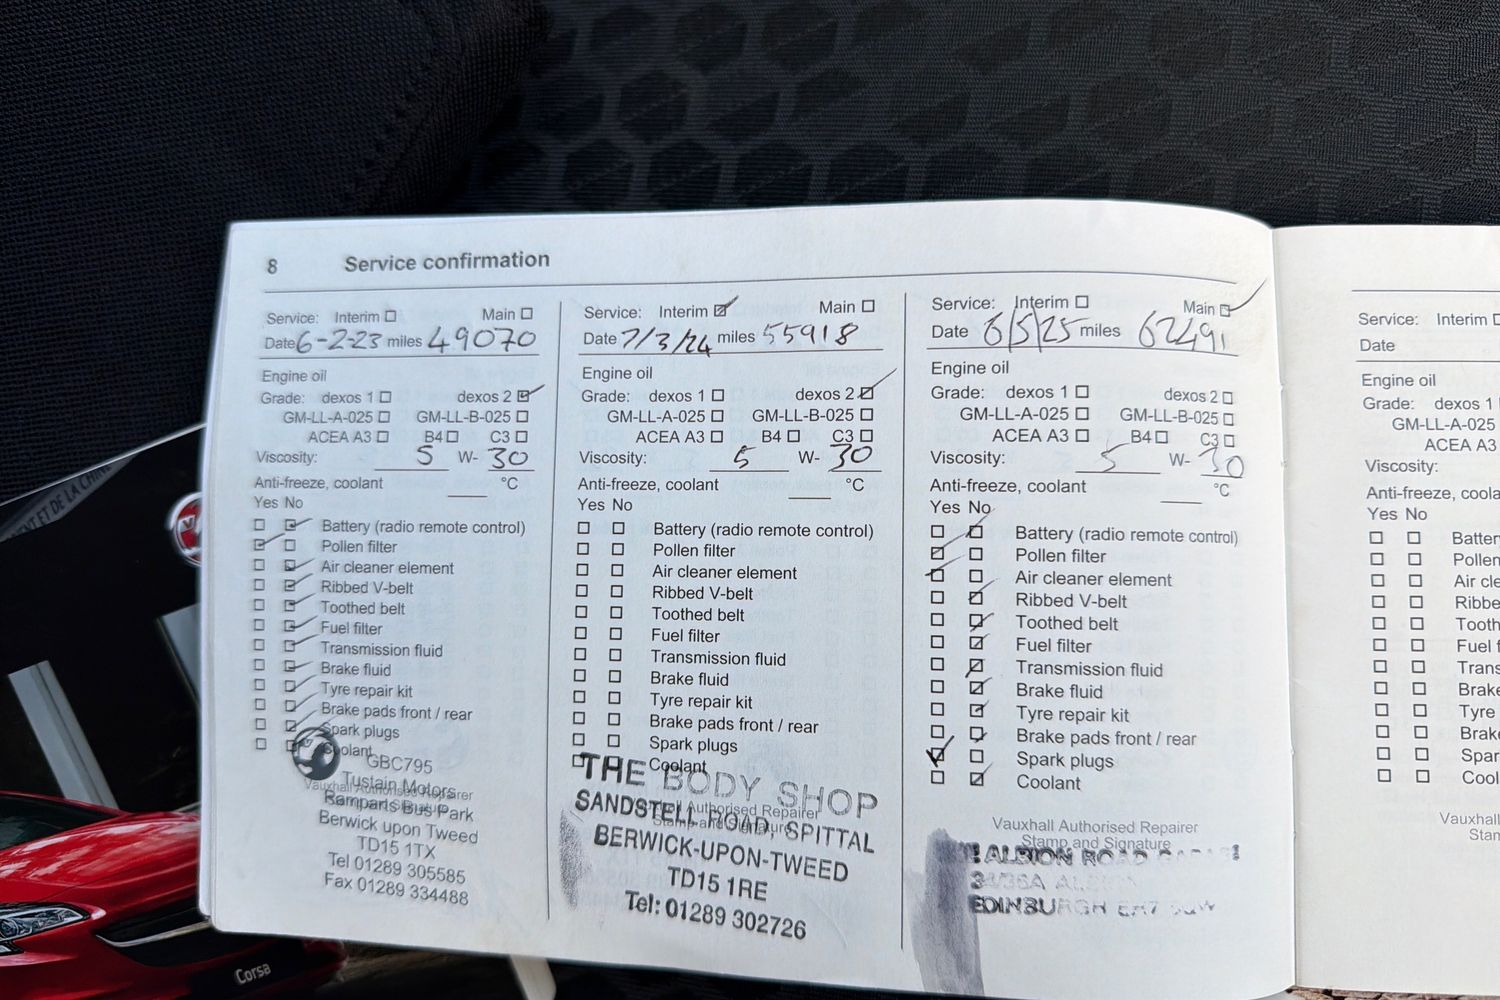 8 Service confirmation
Service: Interim ☐ Main ☐
Date 6-2-23 miles 49070
Engine oil
Grade: dexos 1 ☐ dexos 2 ☑
GM-LL-A-025 ☐ GM-LL-B-025 ☐
ACEA A3 ☐ B4 ☐ C3 ☐
Viscosity: 5 W- 30
Anti-freeze, coolant ____ °C
Yes No
☐ ☑ Battery (radio remote control)
☑ ☐ Pollen filter
☐ ☑ Air cleaner element
☐ ☑ Ribbed V-belt
☐ ☑ Toothed belt
☐ ☑ Fuel filter
☐ ☑ Transmission fluid
☐ ☑ Brake fluid
☐ ☑ Tyre repair kit
☐ ☑ Brake pads front / rear
☐ ☑ Spark plugs
☐ ☑ Coolant
GBC795
Tustain Motors
Vauxhall Authorised Repairer
Ramparts Bus Park
Berwick upon Tweed
TD15 1TX
Tel 01289 305585
Fax 01289 334488
Service: Interim ☑ Main ☐
Date 7/3/24 miles 55918
Engine oil
Grade: dexos 1 ☐ dexos 2 ☑
GM-LL-A-025 ☐ GM-LL-B-025 ☐
ACEA A3 ☐ B4 ☐ C3 ☐
Viscosity: 5 W- 30
Anti-freeze, coolant ____ °C
Yes No
☐ ☐ Battery (radio remote control)
☐ ☐ Pollen filter
☐ ☐ Air cleaner element
☐ ☐ Ribbed V-belt
☐ ☐ Toothed belt
☐ ☐ Fuel filter
☐ ☐ Transmission fluid
☐ ☐ Brake fluid
☐ ☐ Tyre repair kit
☐ ☐ Brake pads front / rear
☐ ☐ Spark plugs
☐ ☐ Coolant
THE BODY SHOP
Vauxhall Authorised Repairer
SANDSTELL ROAD, SPITTAL
Stamp and Signature
BERWICK-UPON-TWEED
TD15 1RE
Tel: 01289 302726
Service: Interim ☐ Main ☑
Date 6/5/25 miles 62491
Engine oil
Grade: dexos 1 ☐ dexos 2 ☐
GM-LL-A-025 ☐ GM-LL-B-025 ☐
ACEA A3 ☐ B4 ☐ C3 ☐
Viscosity: 5 W- 30
Anti-freeze, coolant ____ °C
Yes No
☐ ☑ Battery (radio remote control)
☑ ☐ Pollen filter
☑ ☐ Air cleaner element
☐ ☑ Ribbed V-belt
☐ ☑ Toothed belt
☐ ☑ Fuel filter
☐ ☑ Transmission fluid
☐ ☑ Brake fluid
☐ ☑ Tyre repair kit
☐ ☑ Brake pads front / rear
☑ ☐ Spark plugs
☐ ☑ Coolant
Vauxhall Authorised Repairer
Stamp and Signature
ALBION ROAD GARAGE
34/36A ALBION
EDINBURGH EH7
Service: Interim ☐
Date
Engine oil
Grade: dexos 1
GM-LL-A-02
ACEA A3
Viscosity:
Anti-freeze, coola
Yes No
☐ ☐ Batter
☐ ☐ Pollen
☐ ☐ Air cle
☐ ☐ Ribbe
☐ ☐ Tooth
☐ ☐ Fuel f
☐ ☐ Trans
☐ ☐ Brake
☐ ☐ Tyre
☐ ☐ Brake
☐ ☐ Spar
☐ ☐ Cool
Vauxhall
Stam
Corsa